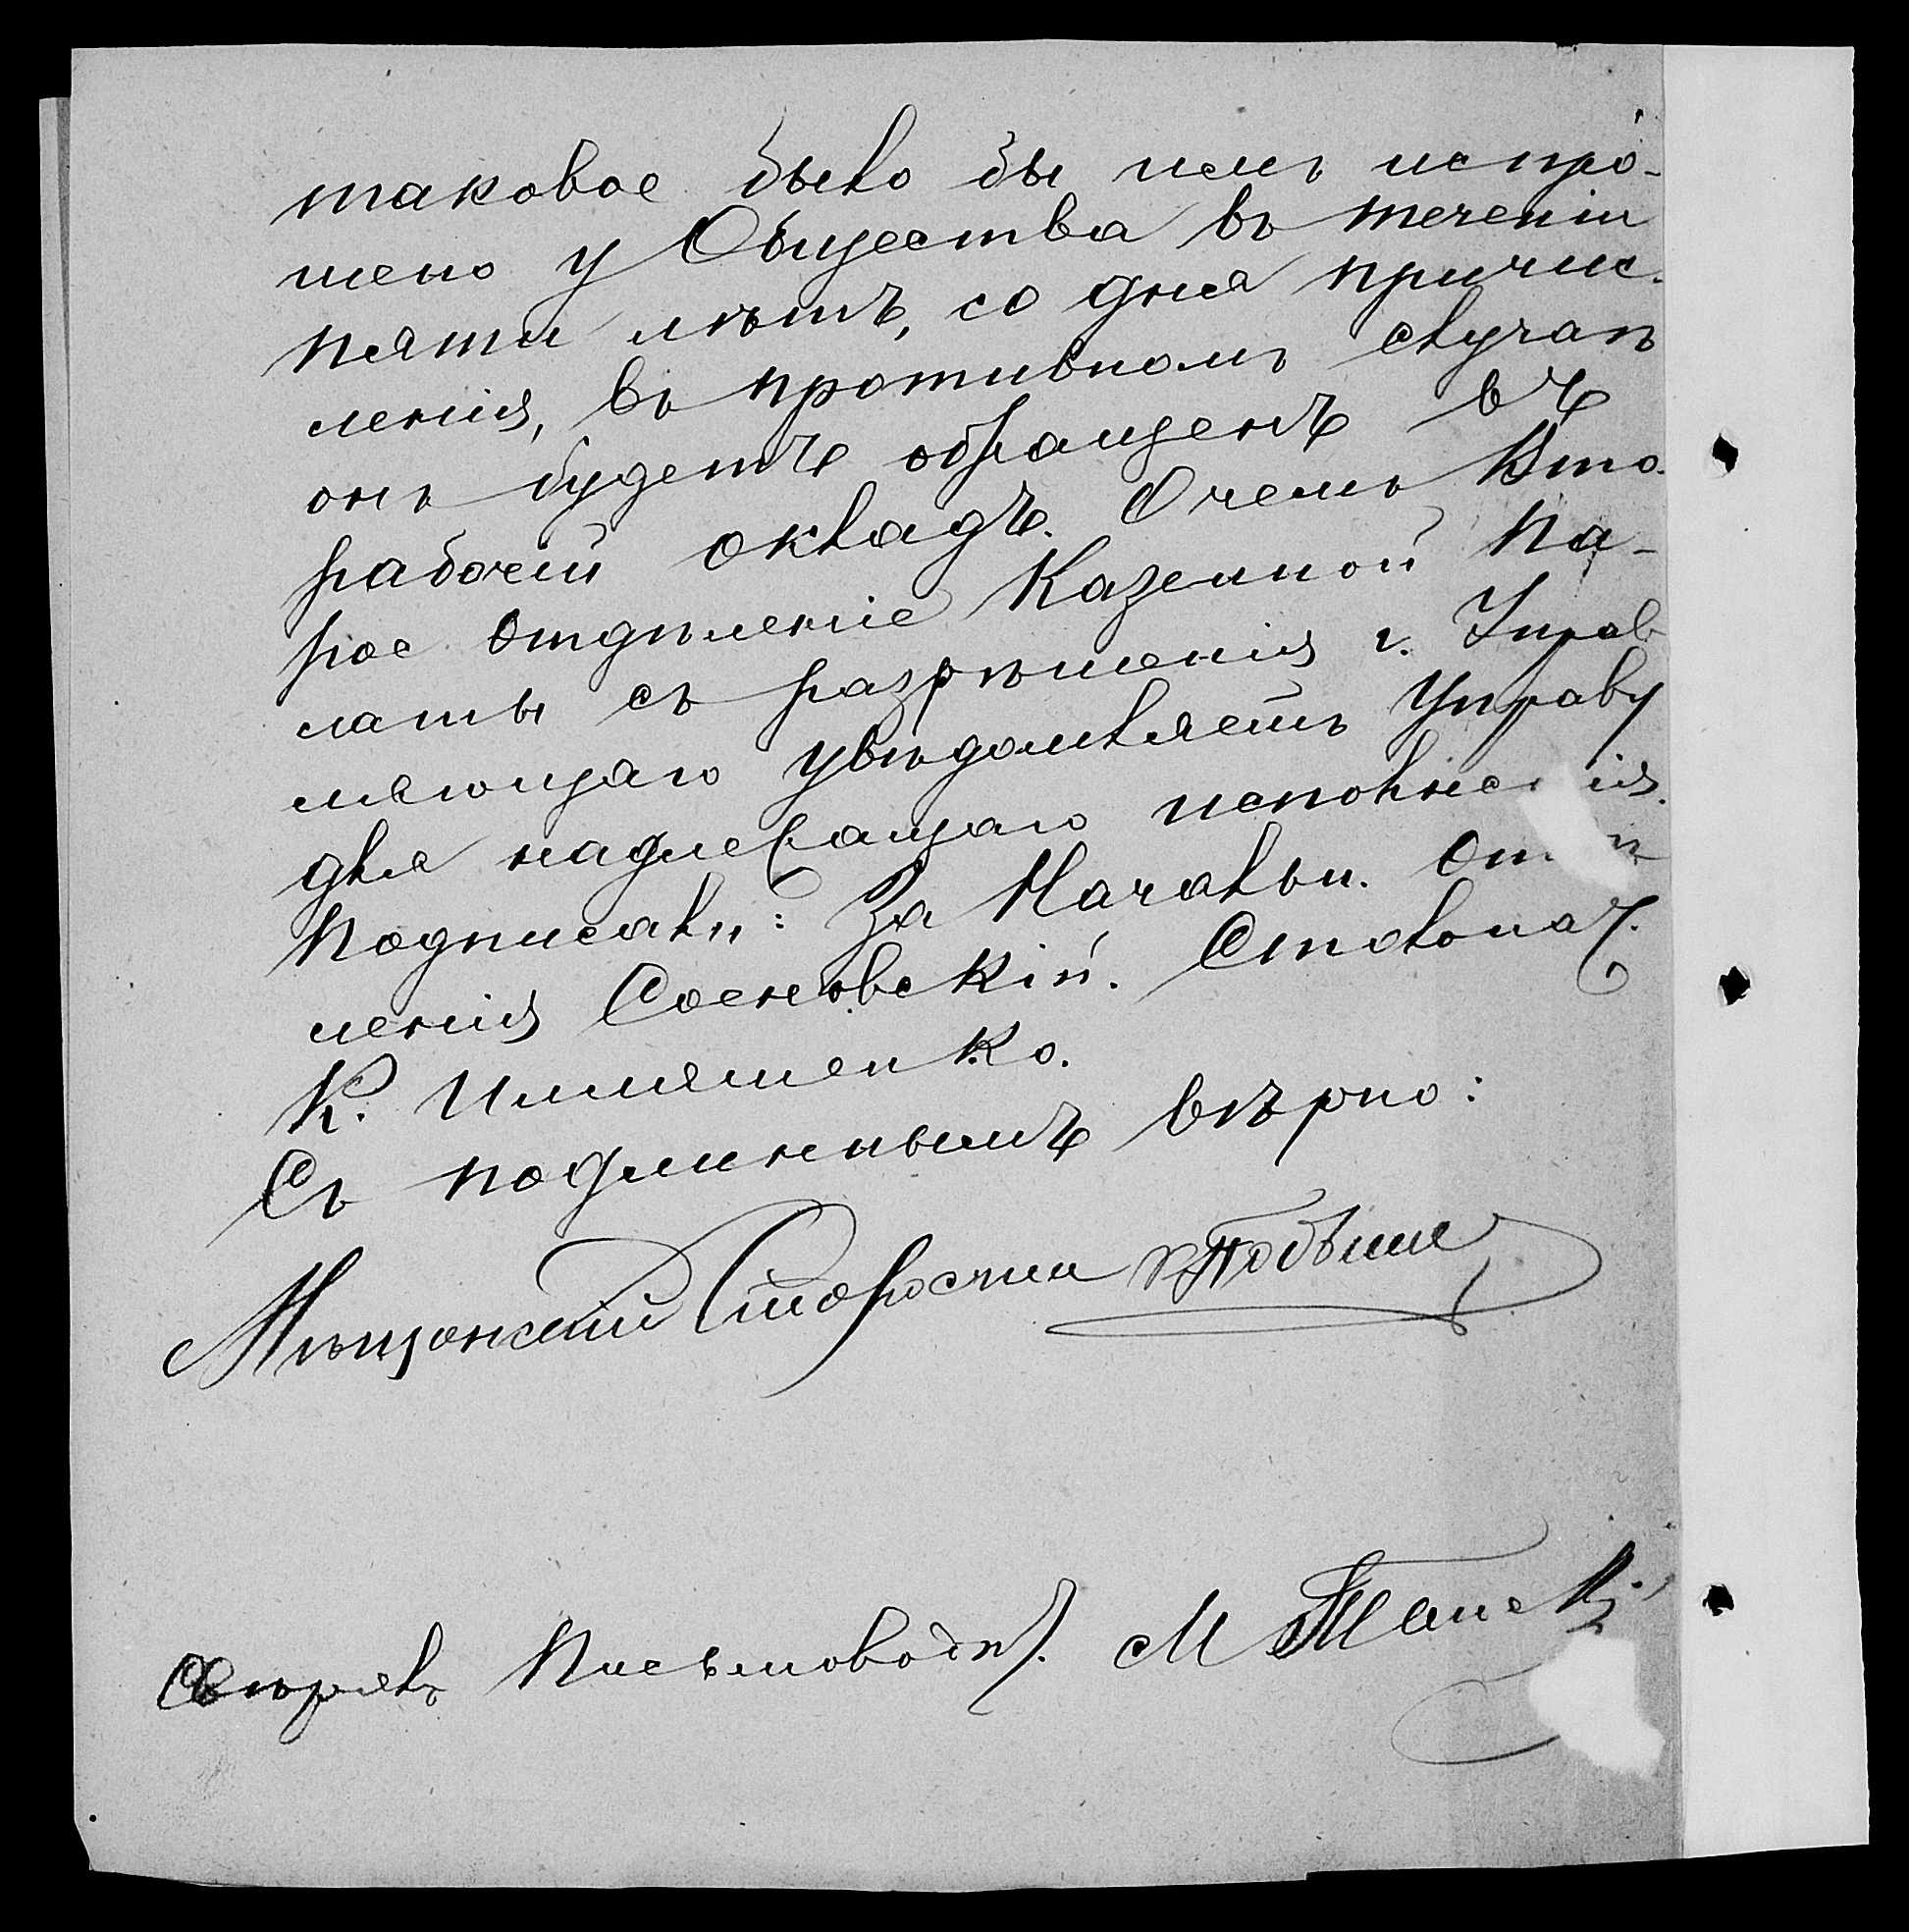 таковое было бы имъ испро-
шено у Общества въ теченіи
пяти лѣтъ, со дня причис-
ленія, въ противномъ случаѣ
онъ будетъ обращенъ въ
рабочій окладъ. О чемъ Вто-
рое отдѣленіе Казенной Па-
латы съ разрѣшенія г. Управ
ляющаго увѣдомляетъ Управу
для надлежащаго исполненія.
Подписали: За Начальн. Отдѣ
ленія Сосновскій. Столонач.
К. Иллляшенко.
Съ подлиннымъ вѣрно:
Мѣщанскій Староста
Свѣрялъ Письмовод. М